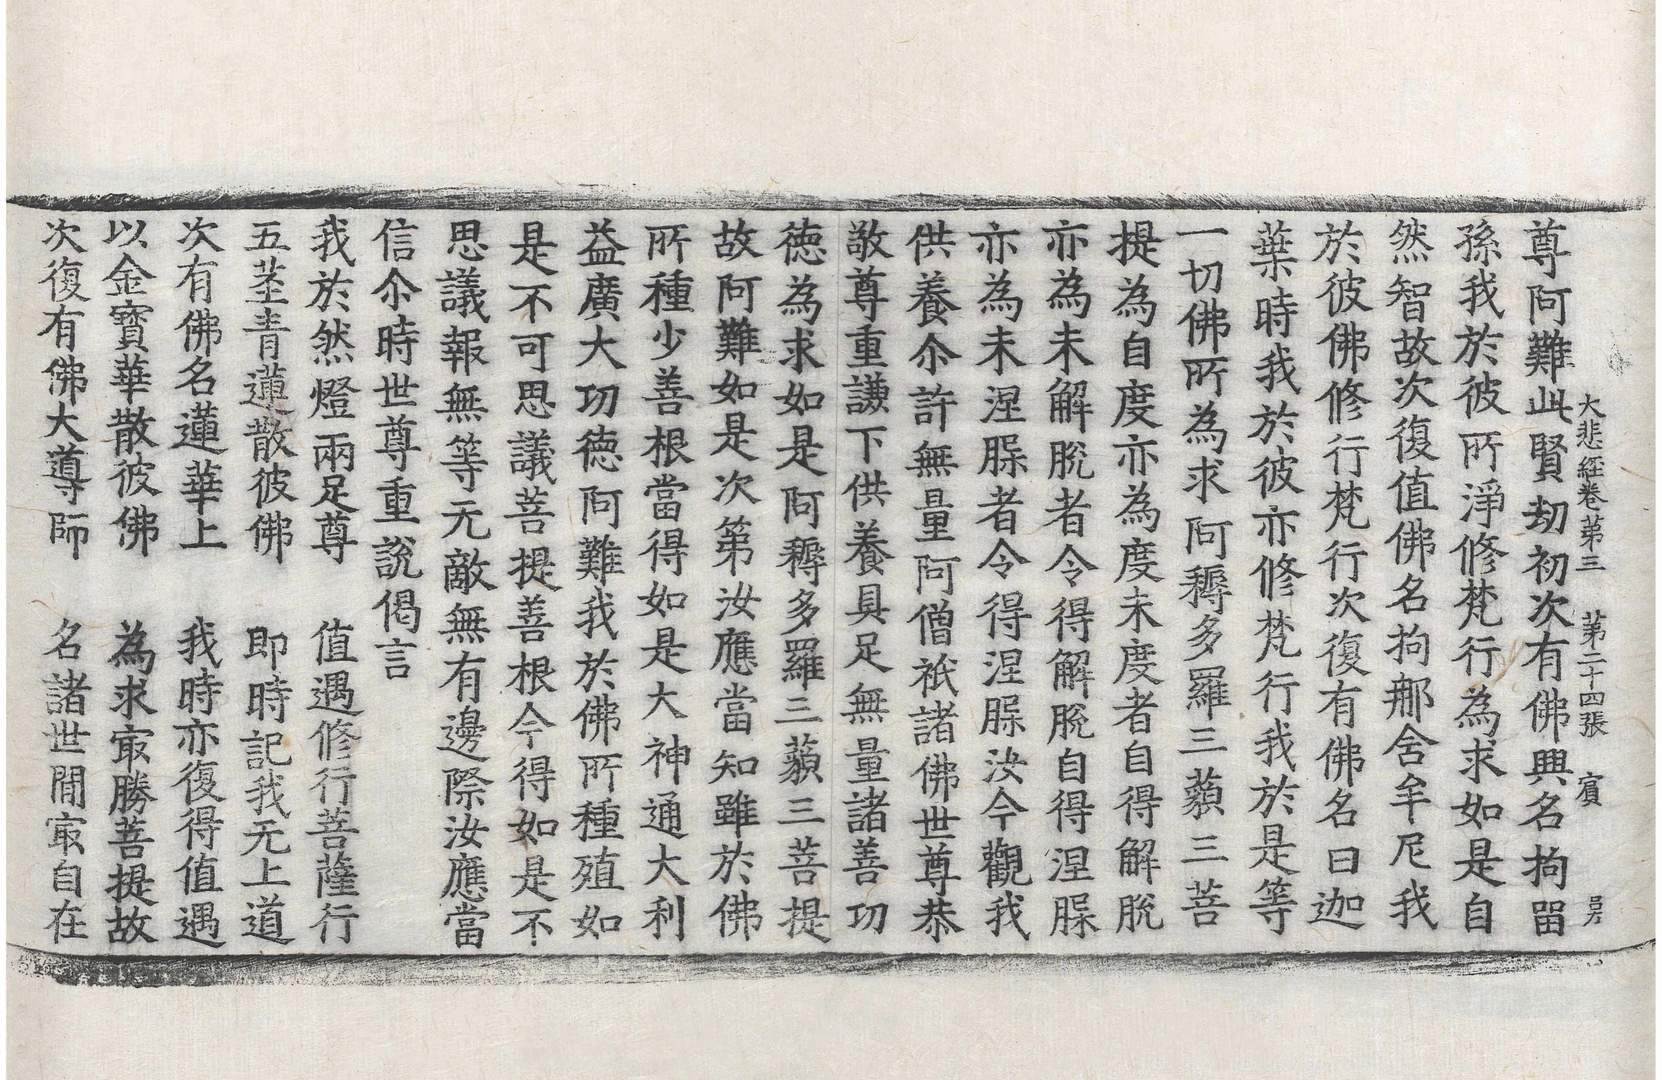 大悲經卷第三 第二十四張 賓
尊阿難此賢劫初次有佛興名拘留
孫我於彼所淨修梵行為求如是自
然智故次復值佛名拘那舍牟尼我
於彼佛修行梵行次復有佛名曰迦
葉時我於彼亦修梵行我於是等
一切佛所為求阿耨多羅三藐三菩
提為自度亦為度未度者自得解脫
亦為未解脫者令得解脫自得涅槃
亦為未涅槃者令得涅槃汝今觀我
供養尒許無量阿僧祇諸佛世尊恭
敬尊重謙下供養具足無量諸善功
德為求如是阿耨多羅三藐三菩提
故阿難如是次第汝應當知雖於佛
所種少善根當得如是大神通大利
益廣大功德阿難我於佛所種殖如
是不可思議菩提善根今得如是不
思議報無等无敵無有邊際汝應當
信尒時世尊重說偈言
我於然燈兩足尊 值遇修行菩薩行
五莖青蓮散彼佛 即時記我无上道
次有佛名蓮華上 我時亦復得值遇
以金寶華散彼佛 為求㝡勝菩提故
次復有佛大導師 名諸世間㝡自在